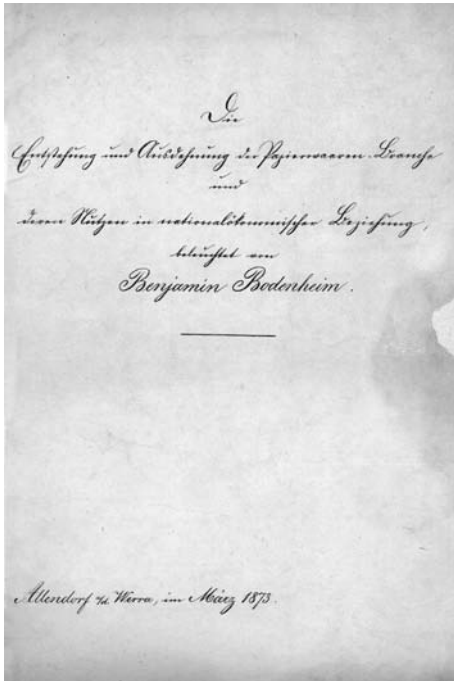 Die
Entstehung und Ausdehnung der Papierwaaren-Branche
und
deren Nutzen in nationalökonomischer Beziehung,
beleuchtet von
Benjamin Bodenheim.
Allendorf a/d. Werra, im März 1873.